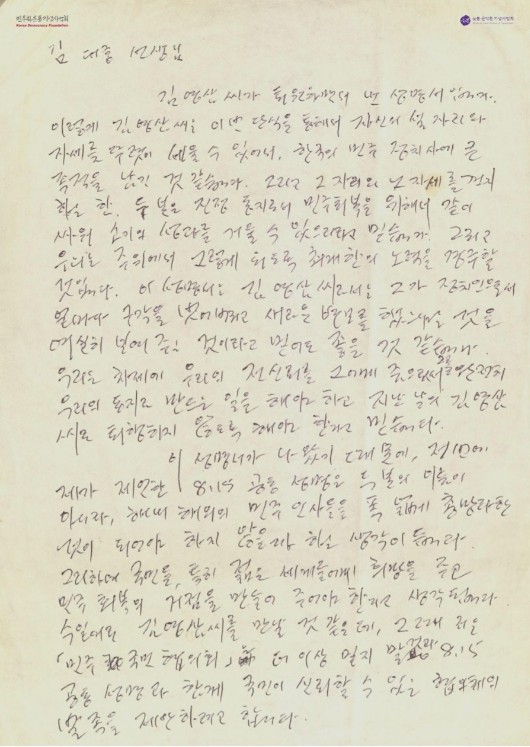 민주화운동기념사업회
Korea Democracy Foundation
김대중 선생님
김영삼 씨가 퇴원하면서 낸 성명서입니다.
이렇게 김영삼 씨는 이번 단식을 통해서 자신의 설 자리와
자세를 뚜렷이 세울 수 있어서, 한국의 민주 정치사에 큰
족적을 남긴 것 같습니다. 그리고 그 자리와 그 자세를 견지
하는 한, 두 분은 진정 동지로서 민주회복을 위해서 같이
싸워 소기의 성과를 거둘 수 있으리라고 믿습니다. 그리고
우리는 주위에서 그렇게 되도록 최대한의 노력을 경주할
것입니다. 이 성명서는 김영삼 씨로서는 그가 정치인으로서
얼마나 구각을 벗어버리고 새로운 변모를 했느냐는 것을
여실히 보여주는 것이라고 믿어도 좋을 것 같습니다.
우리는 차제에 우리의 전 신뢰를 그에게 줌으로써 그를 완전히
우리의 동지로 만드는 일을 해야 하고 지난날의 김영삼
씨로 퇴행하지 않도록 해야 한다고 믿습니다.
이 성명서가 나왔기 때문에, 전번에
제가 제안한 8.15 공동성명은 두 분의 이름이
아니라, 해내 해외의 민주 인사들을 폭넓게 총망라한
것이 되어야 하지 않을까 하는 생각이 듭니다.
그리하여 국민들, 특히 젊은 세대들에게 희망을 주고
민주 회복의 거점을 만들어 주어야 한다고 생각됩니다.
수일 내로 김영삼 씨를 만날 것 같은데, 그때 저는
「민주 국민 협의회」 더 이상 말지 말고 8.15
공동 성명과 함께 국민이 신뢰할 수 있는 협의체의
발족을 제안하려고 합니다.